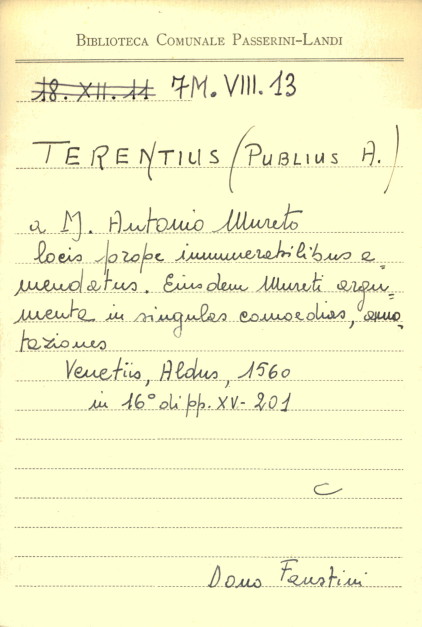 BIBLIOTECA COMUNALE PASSERINI-LANDI
18. XII. 11 7M. VIII. 13
TERENTIUS (PUBLIUS A.)
a M. Antonio Mureto
locis prope innumerabilibus e=
mendatus. Eiusdem Mureti argu=
menta in singulas comoedias, anno=
taziones
Venetiis, Aldus, 1560
in 16° di pp. XV-201
C
Dono Faustini